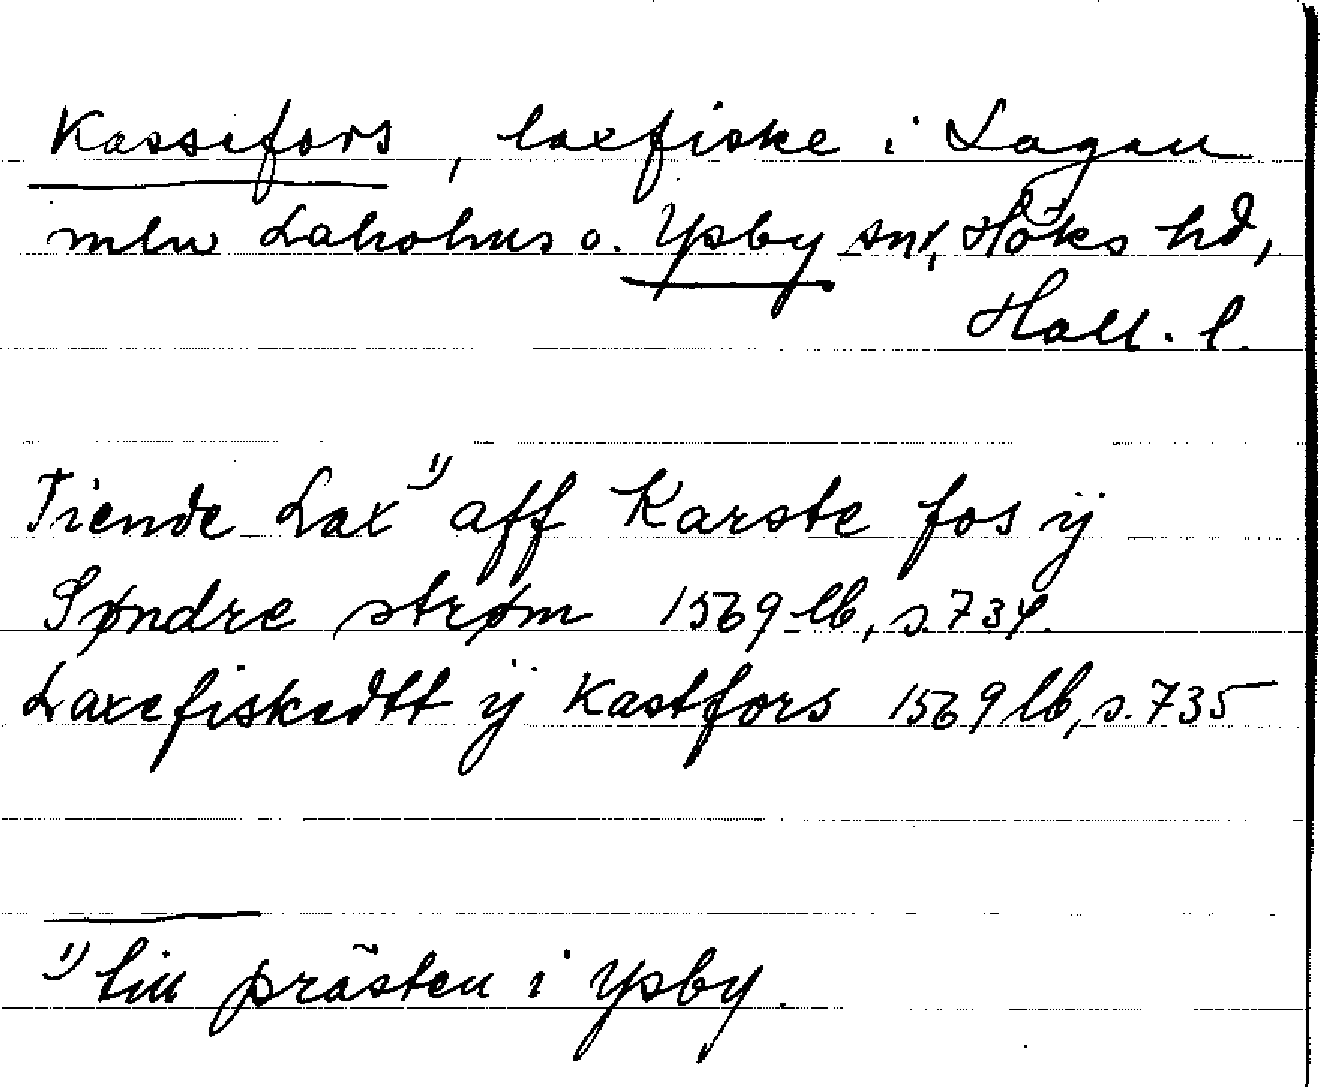 Kassefors, laxfiske i Lagan
mln Laholms o. Ysby snr, Höks hd,
Hall. l.
Tiende Lax 1) aff Karste fos ÿ
Søndre strøm 1569 lb, s. 734.
Laxefiskedtt ÿ Kastfors 1569 lb, s. 735
1) till prästen i Ysby.